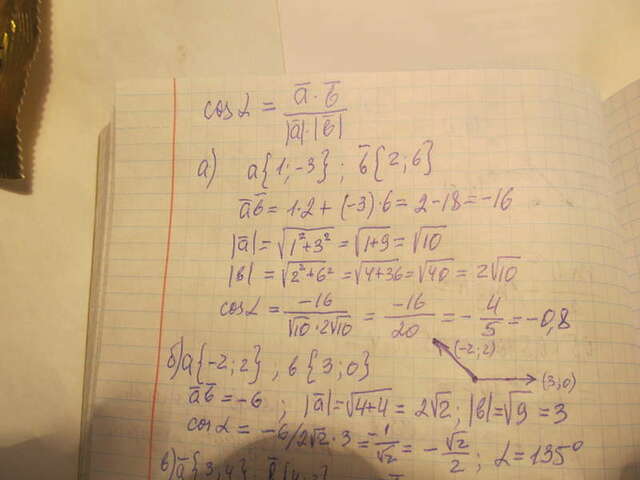 cos α = ā · b̄ / |ā| · |b̄|
а) a{1; -3} ; b̄{2; 6}
āb̄ = 1·2 + (-3)·6 = 2-18 = -16
|ā| = √(1²+3²) = √(1+9) = √10
|b| = √(2²+6²) = √(4+36) = √40 = 2√10
cos α = -16 / √10·2√10 = -16/20 = -4/5 = -0,8
б) a{-2; 2} ; b{3; 0}
(-2; 2)
(3; 0)
āb̄ = -6 ; |ā| = √(4+4) = 2√2 ; |b| = √9 = 3
cos α = -6/2√2·3 = -1/√2 = -√2/2 ; α = 135°
в) ā{3,4}